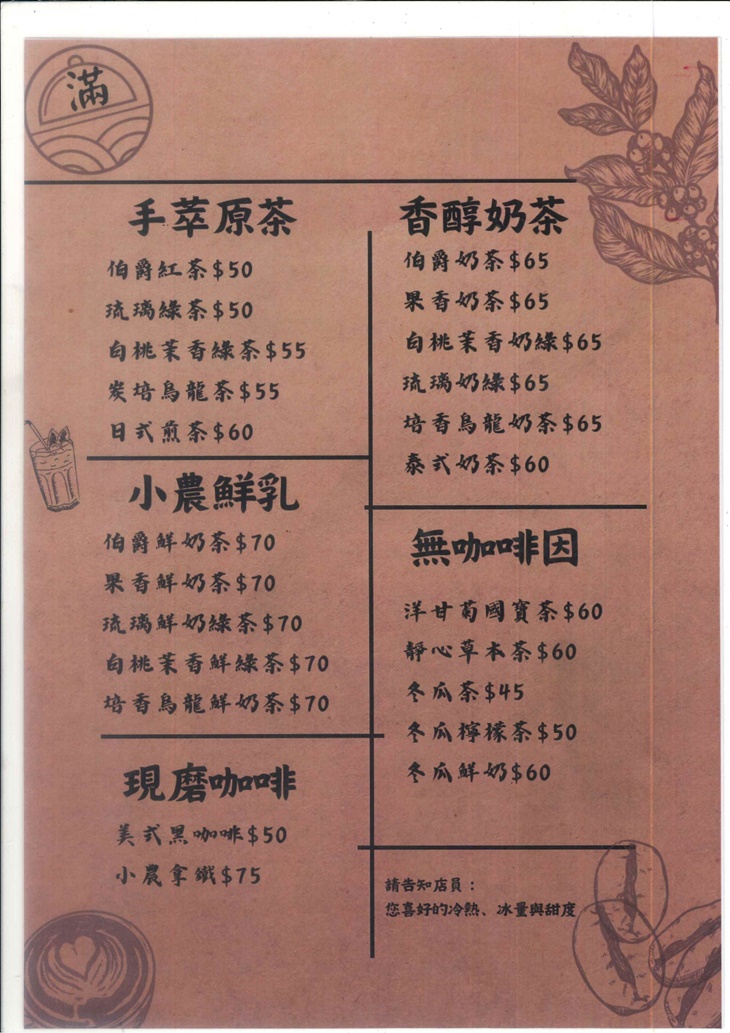 滿
手萃原茶
伯爵紅茶$50
琉璃綠茶$50
白桃茉香綠茶$55
炭培烏龍茶$55
日式煎茶$60
小農鮮乳
伯爵鮮奶茶$70
果香鮮奶茶$70
琉璃鮮奶綠茶$70
白桃茉香鮮綠茶$70
培香烏龍鮮奶茶$70
現磨咖啡
美式黑咖啡$50
小農拿鐵$75
香醇奶茶
伯爵奶茶$65
果香奶茶$65
白桃茉香奶綠$65
琉璃奶綠$65
培香烏龍奶茶$65
泰式奶茶$60
無咖啡因
洋甘菊國寶茶$60
靜心草本茶$60
冬瓜茶$45
冬瓜檸檬茶$50
冬瓜鮮奶$60
請告知店員：
您喜好的冷熱、冰量與甜度